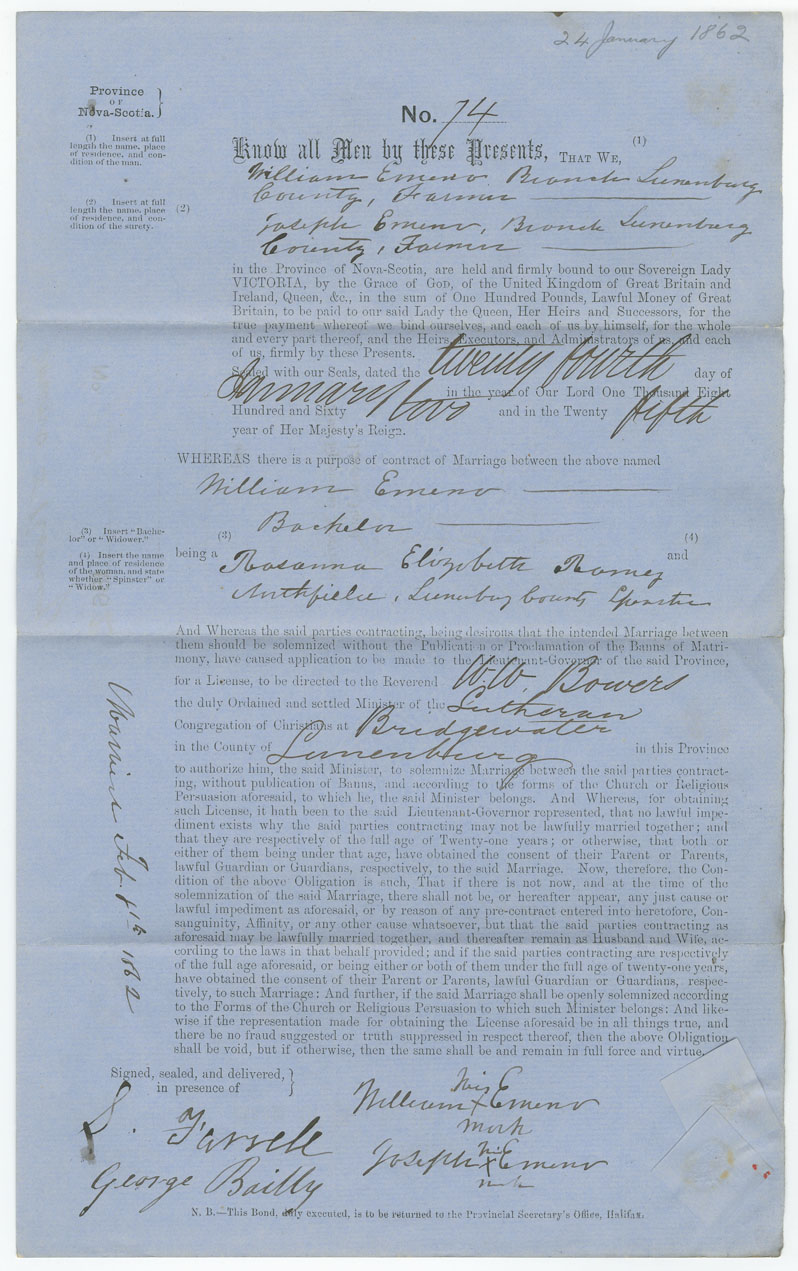 24 January 1862
Province
OF
Nova-Scotia.
No. 74
(1) Insert at full
length the name, place
of residence, and con-
dition of the man.
Know all Men by these Presents, THAT WE, (1)
William Emeno Branch Lunenburg
County, Farmer
(2) Insert at full
length the name, place
of residence, and con-
dition of the surety.
(2)
Joseph Emeno, Branch Lunenburg
County, Farmer
in the Province of Nova-Scotia, are held and firmly bound to our Sovereign Lady
VICTORIA, by the Grace of GOD, of the United Kingdom of Great Britain and
Ireland, Queen, &c., in the sum of One Hundred Pounds, Lawful Money of Great
Britain, to be paid to our said Lady the Queen, Her Heirs and Successors, for the
true payment whereof we bind ourselves, and each of us by himself, for the whole
and every part thereof, and the Heirs, Executors, and Administrators of us, and each
of us, firmly by these Presents.
Sealed with our Seals, dated the twenty fourth day of
January in the year of Our Lord One Thousand Eight
Hundred and Sixty two and in the Twenty fifth
year of Her Majesty's Reign.
WHEREAS there is a purpose of contract of Marriage between the above named
William Emeno
(3) Insert "Bache-
lor" or "Widower."
(3)
being a Bachelor and
(4) Insert the name
and place of residence
of the woman, and state
whether "Spinster" or
"Widow."
(4)
Rosanna Elizabeth Ramey
Northfield, Lunenburg County Spinster
And Whereas the said parties contracting, being desirous that the intended Marriage between
them should be solemnized without the Publication or Proclamation of the Banns of Matri-
mony, have caused application to be made to the Lieutenant-Governor of the said Province,
for a License, to be directed to the Reverend W. W. Bowers
the duly Ordained and settled Minister of the Lutheran
Congregation of Christians at Bridgewater
in the County of Lunenburg in this Province
to authorize him, the said Minister, to solemnize Marriage between the said parties contract-
ing, without publication of Banns, and according to the forms of the Church or Religious
Persuasion aforesaid, to which he, the said Minister belongs. And Whereas, for obtaining
such License, it hath been to the said Lieutenant-Governor represented, that no lawful impe-
diment exists why the said parties contracting may not be lawfully married together; and
that they are respectively of the full age of Twenty-one years; or otherwise, that both or
either of them being under that age, have obtained the consent of their Parent or Parents,
lawful Guardian or Guardians, respectively, to the said Marriage. Now, therefore, the Con-
dition of the above Obligation is such, That if there is not now, and at the time of the
solemnization of the said Marriage, there shall not be, or hereafter appear, any just cause or
lawful impediment as aforesaid, or by reason of any pre-contract entered into heretofore, Con-
sanguinity, Affinity, or any other cause whatsoever, but that the said parties contracting as
aforesaid may be lawfully married together, and thereafter remain as Husband and Wife, ac-
cording to the laws in that behalf provided; and if the said parties contracting are respectively
of the full age aforesaid, or being either or both of them under the full age of twenty-one years,
have obtained the consent of their Parent or Parents, lawful Guardian or Guardians, respec-
tively, to such Marriage: And further, if the said Marriage shall be openly solemnized according
to the Forms of the Church or Religious Persuasion to which such Minister belongs: And like-
wise if the representation made for obtaining the License aforesaid be in all things true, and
there be no fraud suggested or truth suppressed in respect thereof, then the above Obligation
shall be void, but if otherwise, then the same shall be and remain in full force and virtue.
Married Feb. 1862
Signed, sealed, and delivered,
in presence of
his
William X Emeno
mark
S. Farrell
his
Joseph X Emeno
mark
George Bailly
N. B.—This Bond, duly executed, is to be returned to the Provincial Secretary's Office, Halifax.